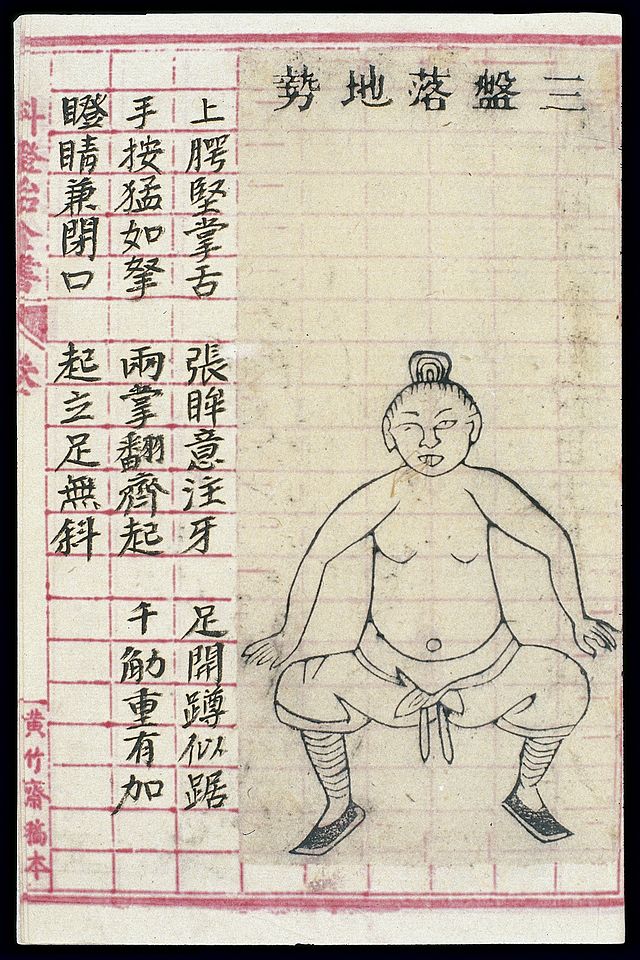 三盤落地勢
上腭堅掌舌
張眸意注牙
足開蹲似踞
手按猛如拏
兩掌翻齊起
千觔重有加
瞪睛兼閉口
起立足無斜
黃竹齋稿本